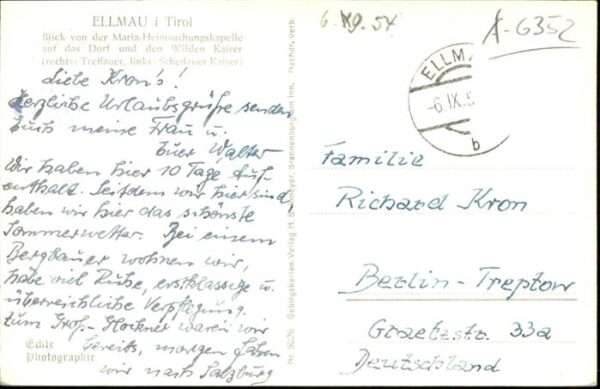 ELLMAU i Tirol
Blick von der Maria-Heimsuchungskapelle
auf das Dorf und den Wilden Kaiser
(rechts Treffauer, links Scheffauer Kaiser)
Liebe Kron's!
Herzliche Urlaubsgrüße senden
Euch meine Frau u.
Euer Walter
Wir haben hier 10 Tage Auf-
enthalt. Seitdem wir hier sind,
haben wir hier das schönste
Sommerwetter. Bei einem
Bergbauer wohnen wir,
habe viel Ruhe, erstklassige u.
überreichliche Verpflegung.
Zum Groß-Glockner waren wir
bereits, morgen fahren
wir nach Salzburg
Echte
Photographie
Gebirgskarten Verlag H.
Brannenburg am Inn.
Nachdr. verb.
6. IX. 54
A-6352
ELLMA
-6.IX.5
b
Familie
Richard Kron
Berlin-Treptow
Graetzstr. 33a
Deutschland